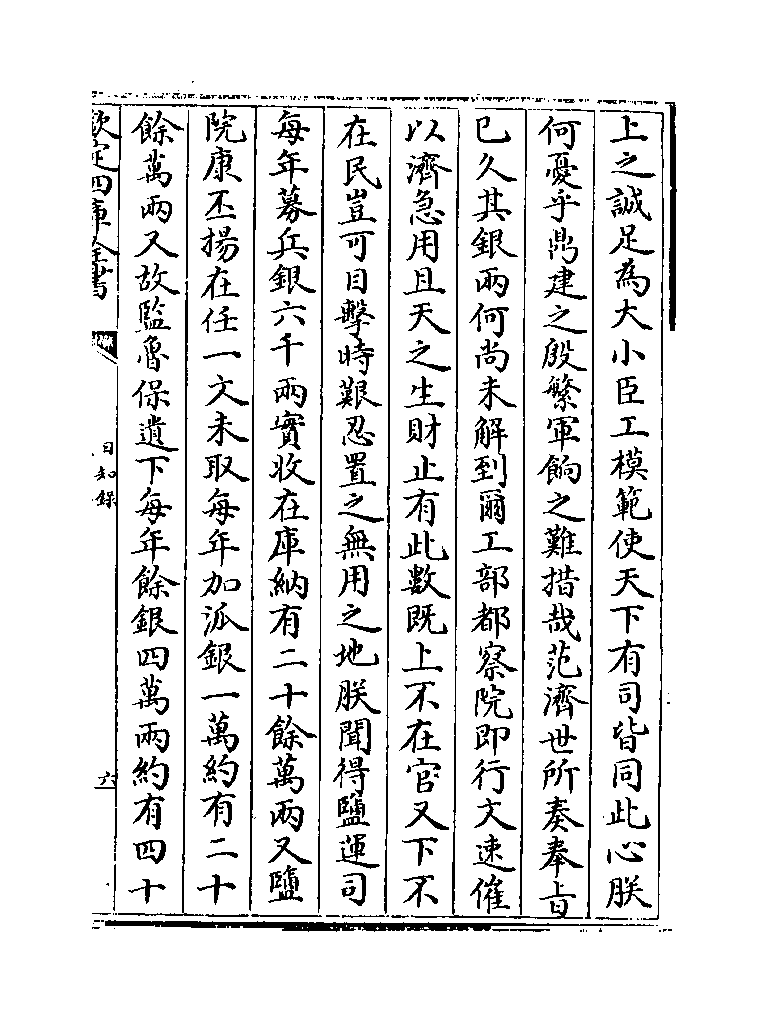 上之誠足為大小臣工模範使天下有司皆同此心朕
何憂乎鼎建之殷繁軍餉之難措哉范濟世所奏奉㫖
已久其銀兩何尚未解到爾工部都察院即行文速催
以濟急用且天之生財止有此數既上不在官又下不
在民豈可目擊時艱忍置之無用之地朕聞得鹽運司
每年募兵銀六千兩實收在庫納有二十餘萬兩又鹽
院康丕揚在任一文未取每年加派銀一萬約有二十
餘萬兩又故監魯保遺下每年餘銀四萬兩約有四十
欽定四庫全書
日知錄
六